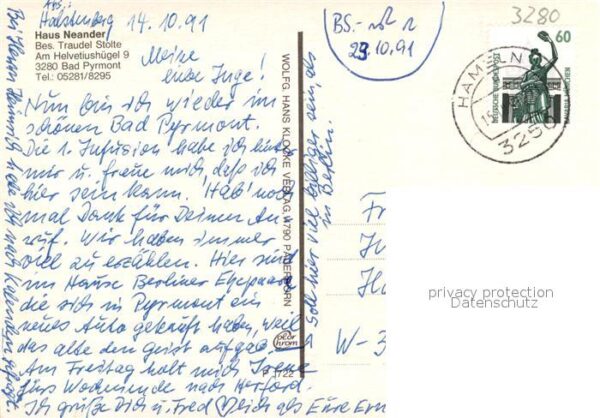 Abs.:
Halstenberg 14.10.91
Haus Neander
Bes. Traudel Stolte
Am Helvetiushügel 9
3280 Bad Pyrmont
Tel.: 05281/8295
Meine
liebe Inge!
Nun bin ich wieder im
schönen Bad Pyrmont.
Die 1. Infusion habe ich hinter
mir u. freue mich, daß ich
hier sein kann. Hab' noch
mal Dank für Deinen An
ruf. Wir haben immer
viel zu erzählen. Hier sind
im Hause Berliner Ehepaare
die sich in Pyrmont ein
neues Auto gekauft haben, weil
das alte den Geist aufgab.
Am Freitag holt mich Irene
fürs Wochenende nach Herford.
Ich grüße Dich u. Fred herzlich als Eure Ern
Soll hier viel billiger sein, als
in Berlin.
Bei Herrn Heinrich habe ich nach Kalendern gefragt.
WOLFG. HANS KLOCKE VERLAG, 4790 PADERBORN
color
chrom
P 1722
BS.-
23.10.91
3280
60
DEUTSCHE BUNDESPOST
BAVARIA MÜNCHEN
HAMELN
3250
Fr
In
Ha
W-3
privacy protection
Datenschutz